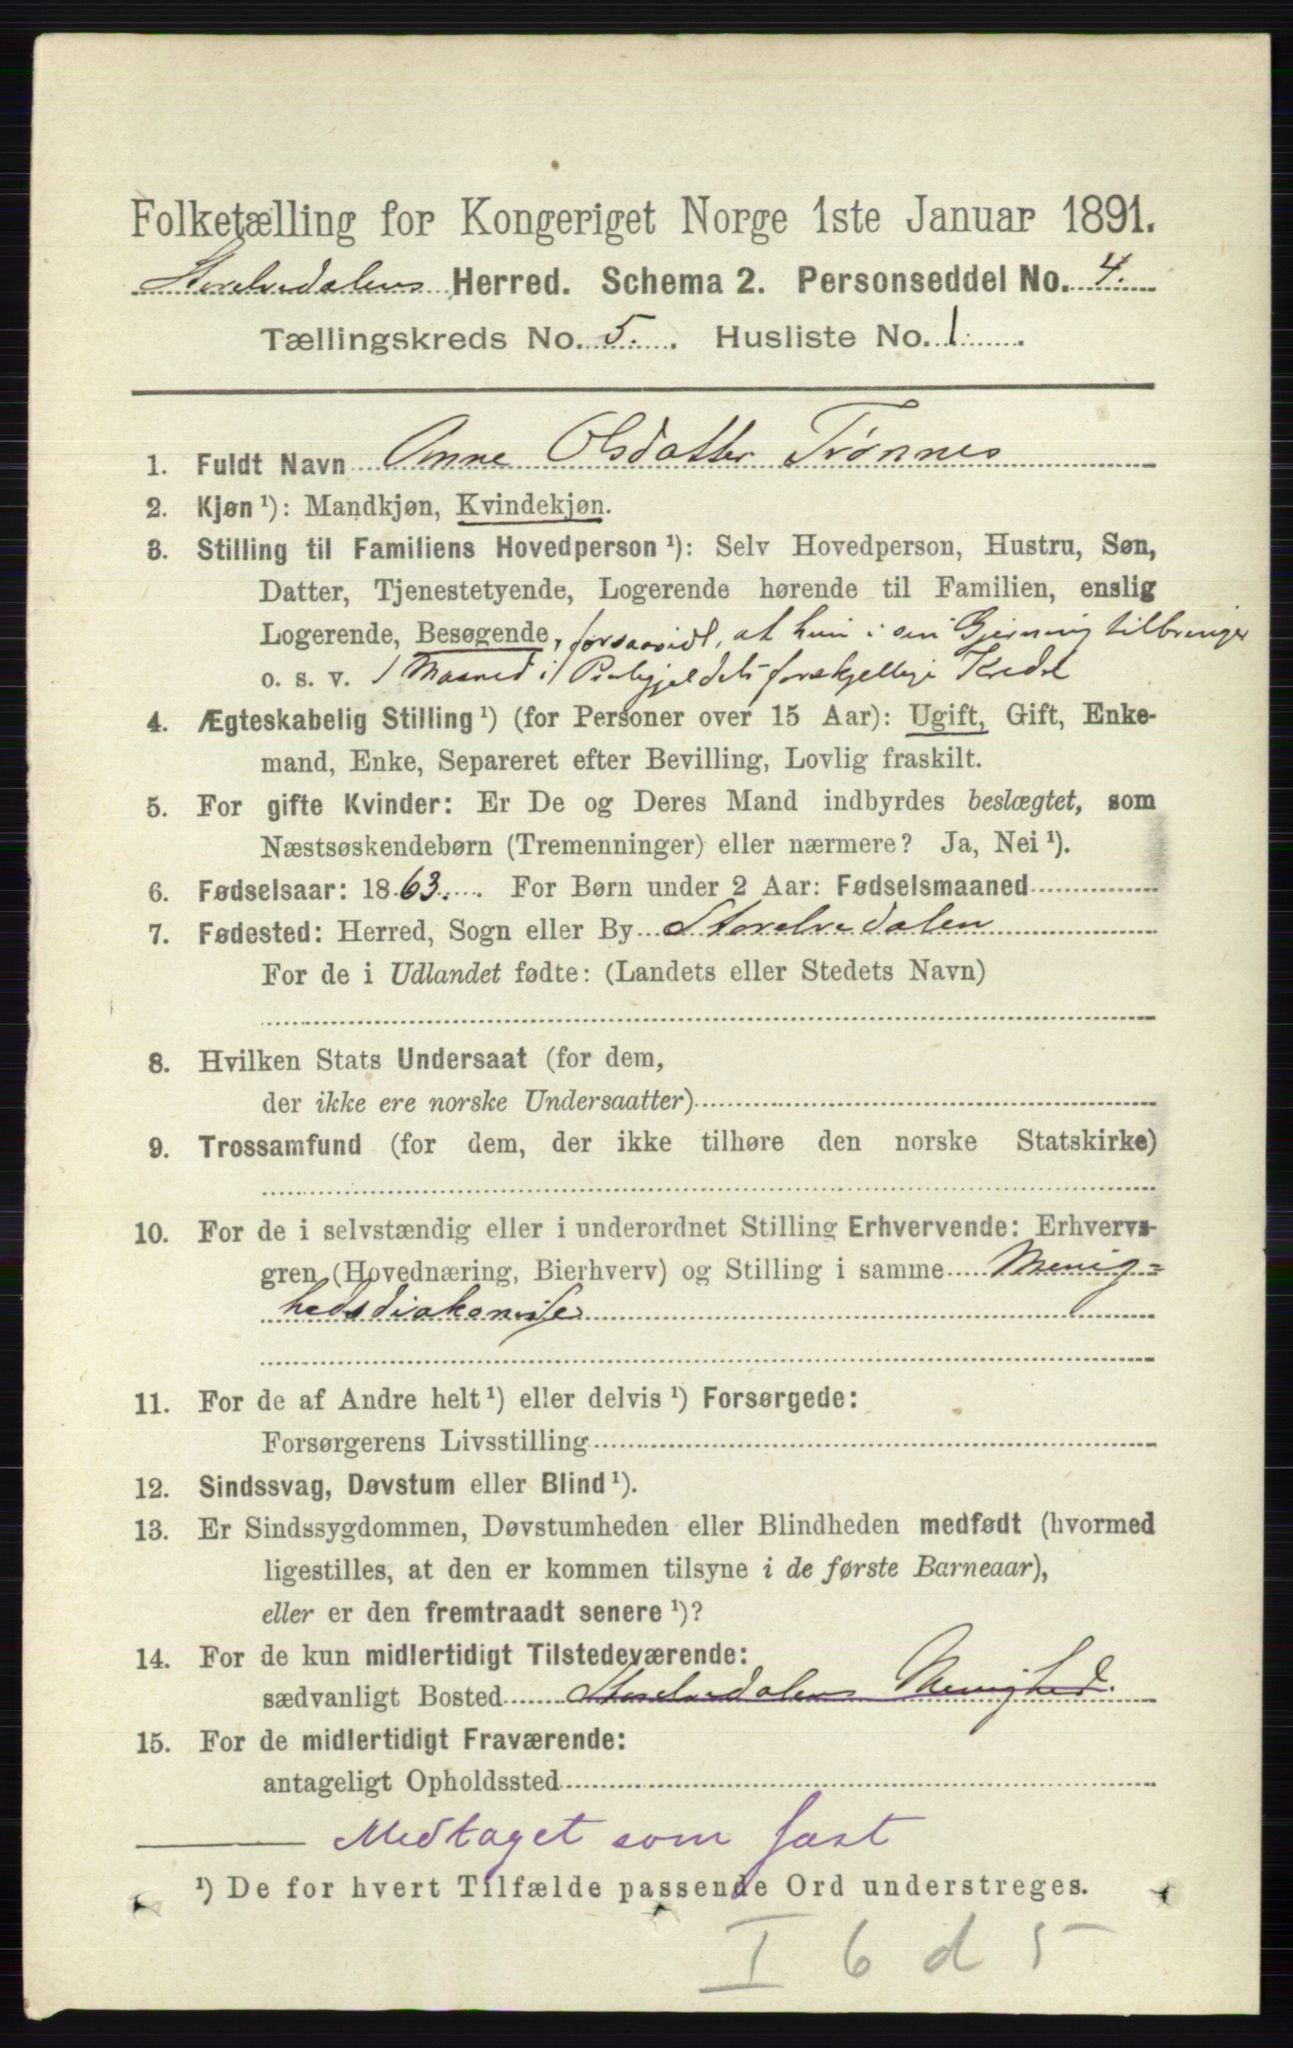 Folketælling for Kongeriget Norge 1ste Januar 1891.
Storelvedalens Herred. Schema 2. Personseddel No. 4.
Tællingskreds No. 5. Husliste No. 1.
1. Fuldt Navn Anne Olsdatter Trønnes
2. Kjøn ¹): Mandkjøn, Kvindekjøn.
3. Stilling til Familiens Hovedperson ¹): Selv Hovedperson, Hustru, Søn,
Datter, Tjenestetyende, Logerende hørende til Familien, enslig
Logerende, Besøgende, forsaavidt, at hun i sin Gjerning tilbringer
o. s. v. 1 Maaned i Præstegjeldets forskjellige Kredse
4. Ægteskabelig Stilling ¹) (for Personer over 15 Aar): Ugift, Gift, Enke-
mand, Enke, Separeret efter Bevilling, Lovlig fraskilt.
5. For gifte Kvinder: Er De og Deres Mand indbyrdes beslægtet, som
Næstsøskendebørn (Tremenninger) eller nærmere? Ja, Nei ¹).
6. Fødselsaar: 1863. For Børn under 2 Aar: Fødselsmaaned
7. Fødested: Herred, Sogn eller By Storelvedalen
For de i Udlandet fødte: (Landets eller Stedets Navn)
8. Hvilken Stats Undersaat (for dem,
der ikke ere norske Undersaatter)
9. Trossamfund (for dem, der ikke tilhøre den norske Statskirke)
10. For de i selvstændig eller i underordnet Stilling Erhvervende: Erhvervs-
gren (Hovednæring, Bierhverv) og Stilling i samme Menig=
hedsdiakonisse
11. For de af Andre helt ¹) eller delvis ¹) Forsørgede:
Forsørgerens Livsstilling
12. Sindssvag, Døvstum eller Blind ¹).
13. Er Sindssygdommen, Døvstumheden eller Blindheden medfødt (hvormed
ligestilles, at den er kommen tilsyne i de første Barneaar),
eller er den fremtraadt senere ¹)?
14. For de kun midlertidigt Tilstedeværende:
sædvanligt Bosted Storelvedalens Menighed.
15. For de midlertidigt Fraværende:
antageligt Opholdssted
Medtaget som fast
¹) De for hvert Tilfælde passende Ord understreges.
I 6 d 5